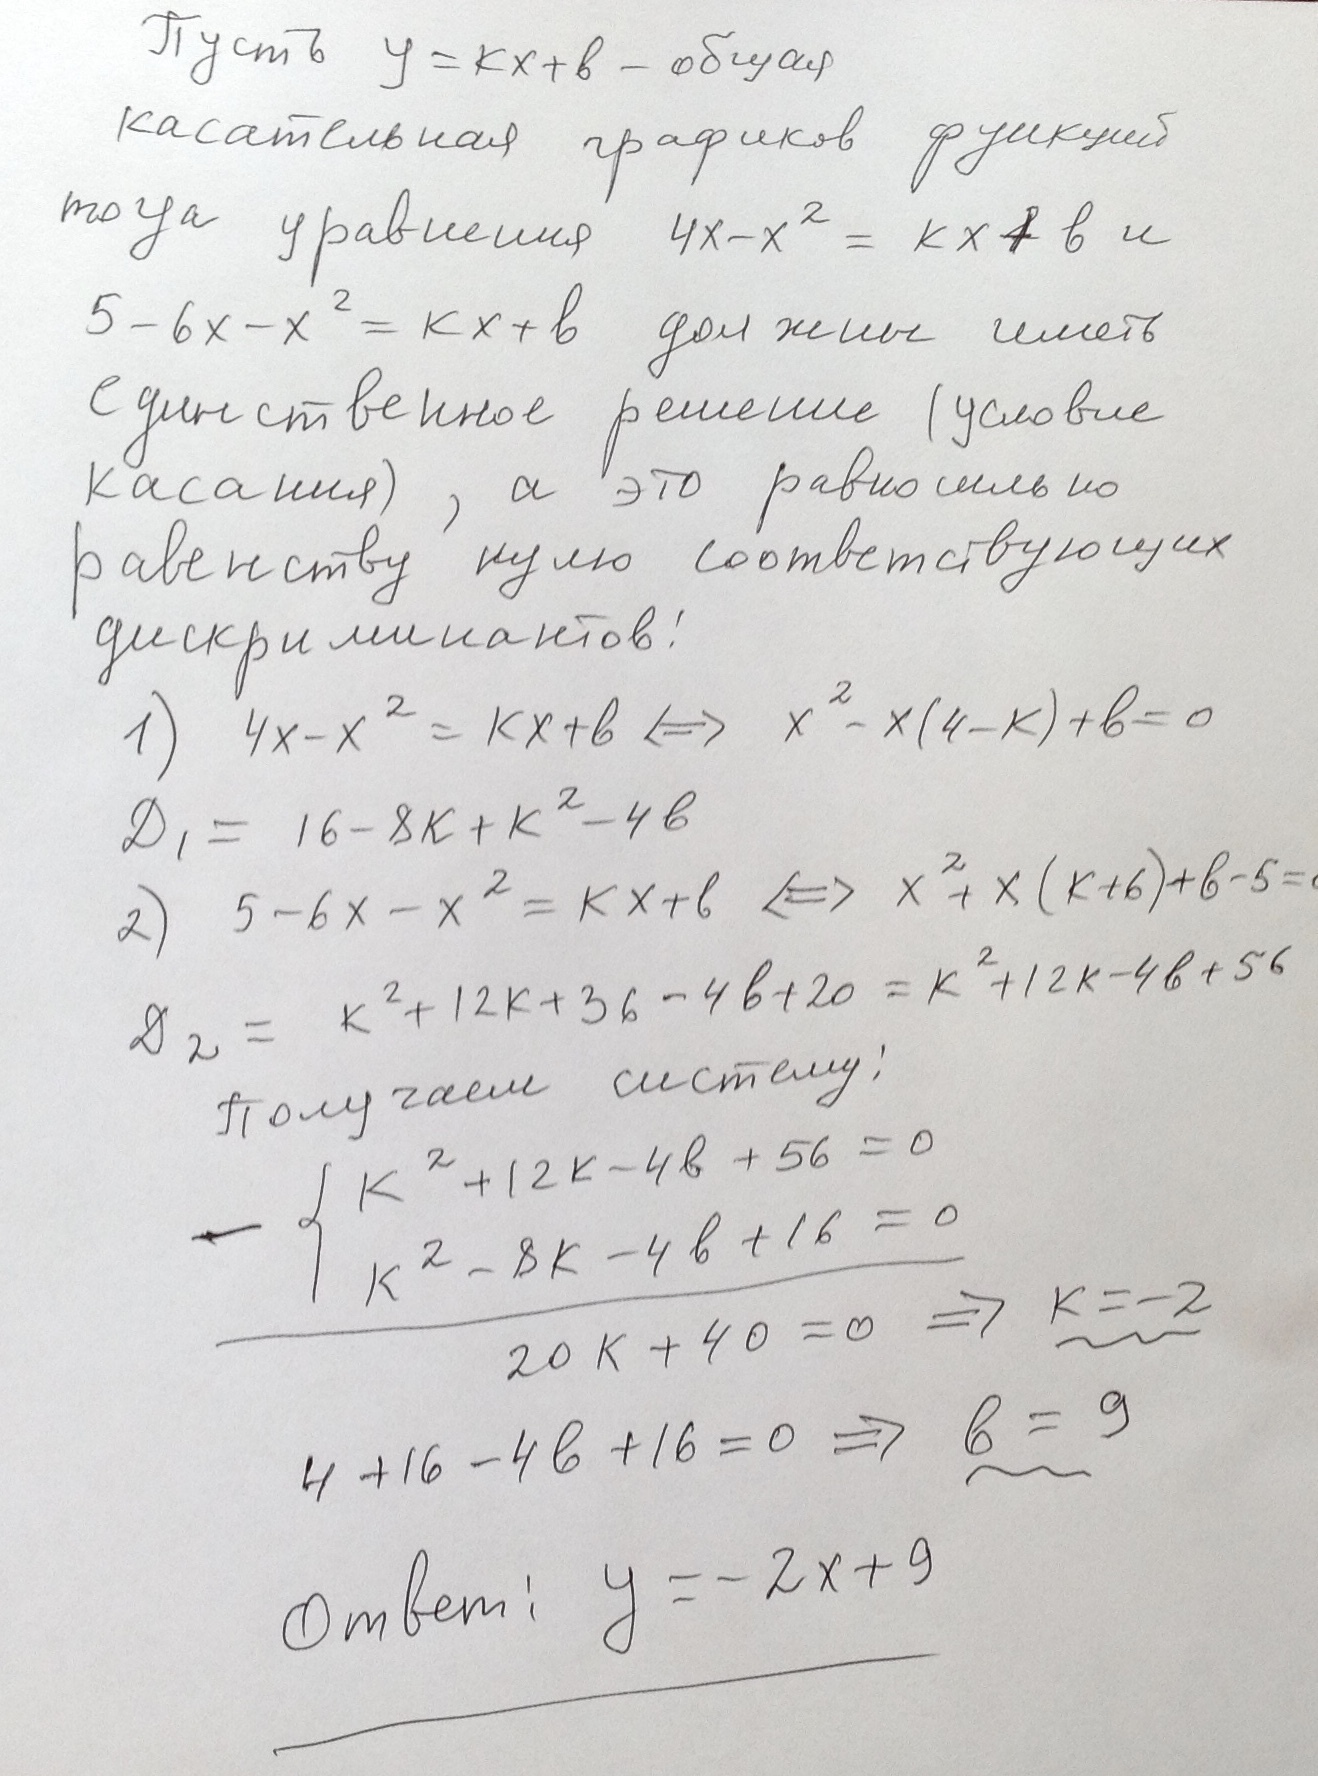 Пусть y = kx+b – общая
касательная графиков функций
тогда уравнения 4x-x² = kx+b и
5-6x-x² = kx+b должны иметь
единственное решение (условие
касания), а это равносильно
равенству нулю соответствующих
дискриминантов:
1) 4x-x² = kx+b <=> x²-x(4-k)+b=0
D₁ = 16-8k+k²-4b
2) 5-6x-x² = kx+b <=> x²+x(k+6)+b-5=0
D₂ = k²+12k+36-4b+20 = k²+12k-4b+56
Получаем систему:
k²+12k-4b+56=0
- {
k²-8k-4b+16=0
20k+40=0 => k=-2
4+16-4b+16=0 => b=9
Ответ: y=-2x+9